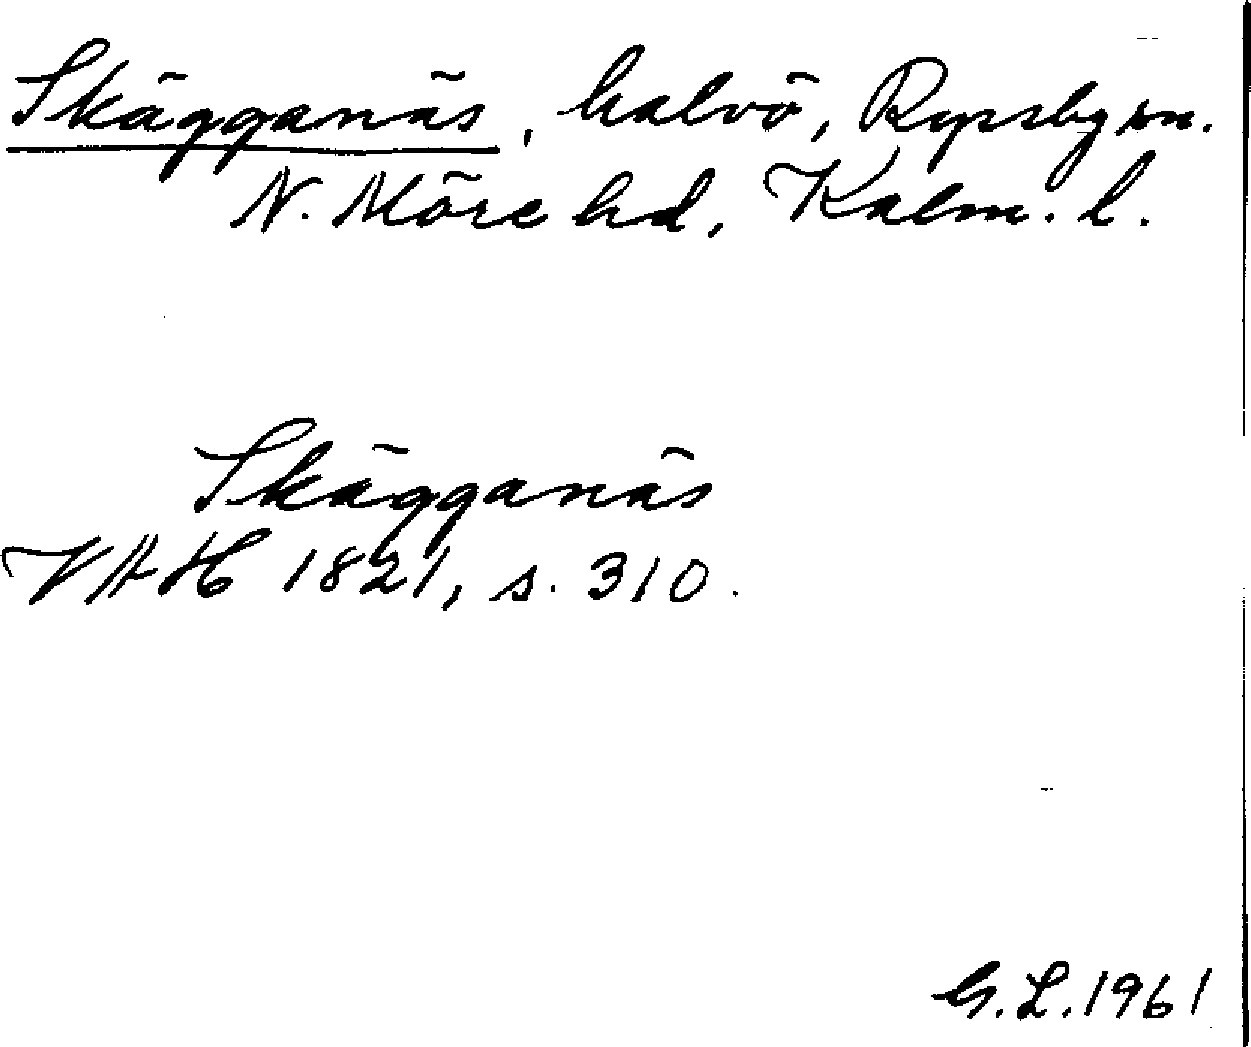 Skägganäs, halvö, Ryssby sn.
N. Möre hd, Kalm. l.
Skägganäs
VAH 1821, s. 310.
G. L. 1961